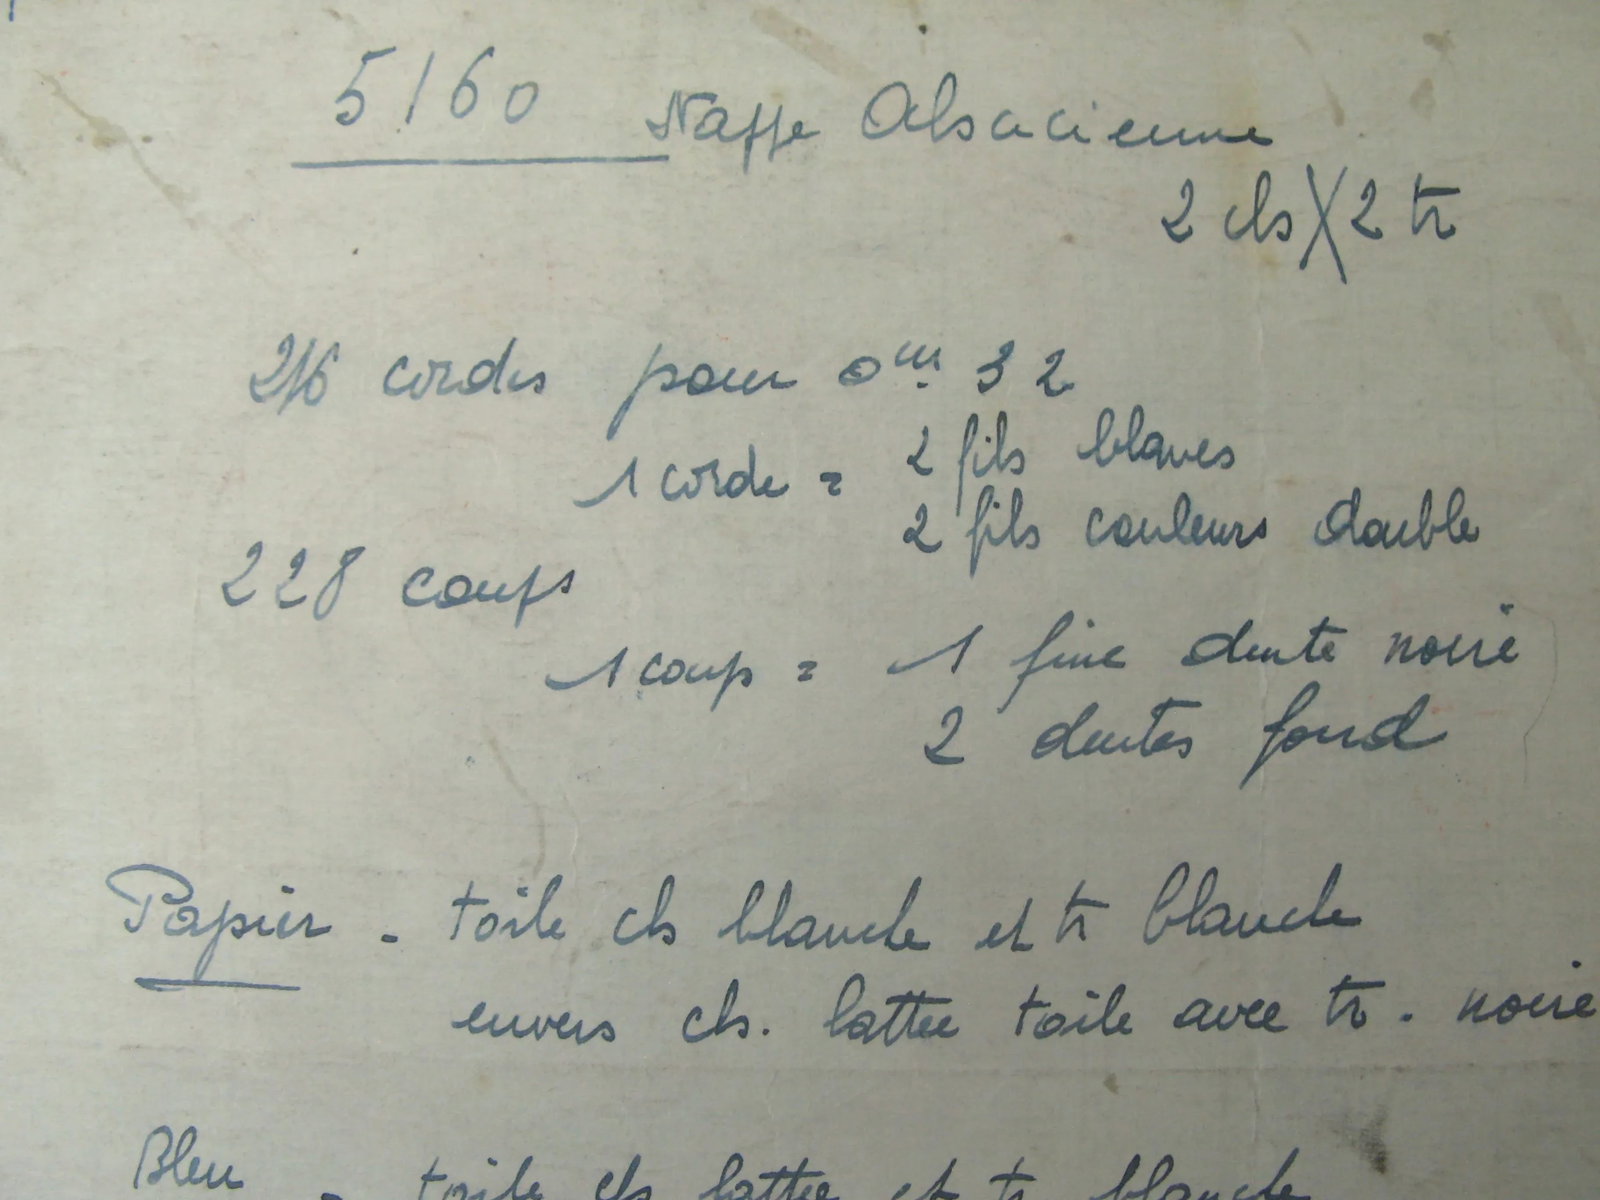 5160 Nappe Alsacienne
2 chs X 2 tr
216 cordes pour 0m. 32
1 corde = 2 fils blancs
2 fils couleurs double
228 coups
1 coup = 1 fine duite noire
2 duites fond
Papier - toile ch blanche et tr blanche
envers ch. lattée toile avec tr. noire
Bleu - toile ch lattée et tr blanche